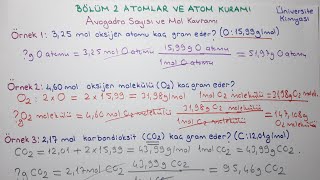 BÖLÜM 2 ATOMLAR VE ATOM KURAMI
Üniversite Kimyası
Avogadro Sayısı ve Mol Kavramı
Örnek 1: 3,25 mol oksijen atomu kaç gram eder? (O:15,99g/mol)
?g O atomu = 3,25 mol O atomu 15,99 g O atomu / 1 mol O atomu = 51,97g O atomu
Örnek 2: 4,60 mol oksijen molekülü (O₂) kaç gram eder?
O₂ : 2 x O = 2 x 15,99 = 31,98g/mol 1mol O₂ molekülü = 31,98g O₂ mol.
?g O₂ molekülü = 4,60 mol O₂ molekülü 31,98g O₂ molekülü / 1mol O₂ molekülü = 147,108g O₂ molekülü
Örnek 3: 2,17 mol karbondioksit (CO₂) kaç gram eder? (C:12,01g/mol)
CO₂ = 12,01 + 2 x 15,99 = 43,99 g/mol 1mol CO₂ = 43,99g CO₂
?g CO₂ = 2,17 mol CO₂ 43,99 g CO₂ / 1 mol CO₂ = 95,46g CO₂